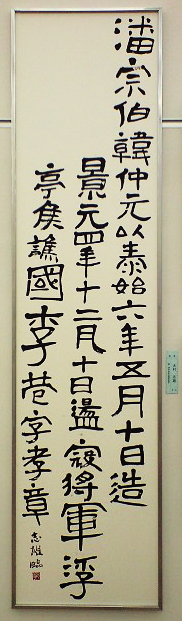 潘宗伯韓仲元以泰始六年五月十日造
景元四年十二月十日盪寇將軍浮
亭侯譙國李苞字孝章
志雄臨